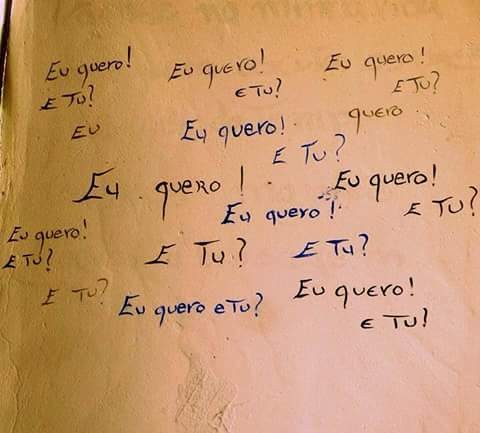 Eu quero!
E Tu?
Eu quero!
E Tu?
Eu quero!
E Tu?
Eu
quero
Eu quero!
E Tu?
Eu quero!
E Tu?
Eu quero!
E Tu?
Eu quero!
E Tu?
Eu quero!
E Tu?
E Tu?
Eu quero e Tu?
Eu quero!
E Tu?